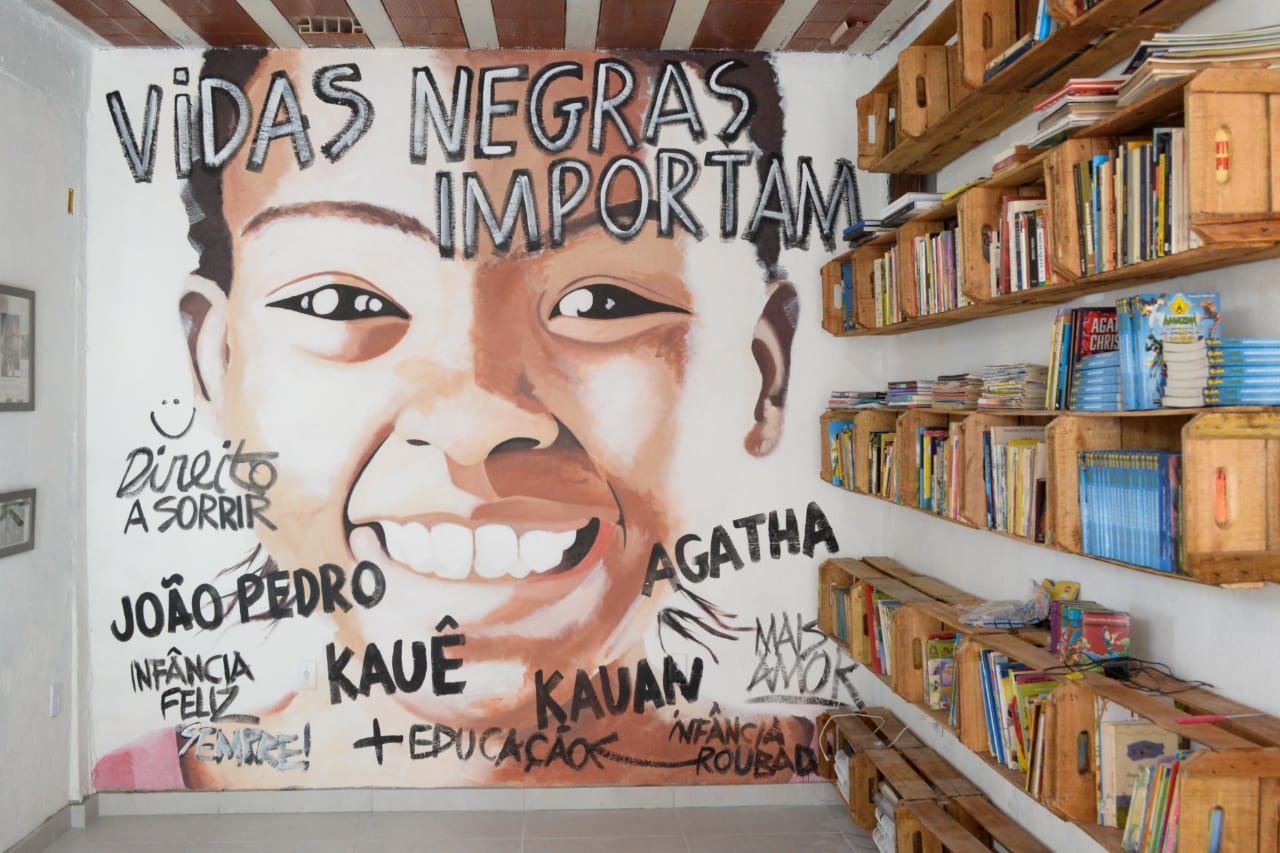 VIDAS NEGRAS
IMPORTAM
Direito
A SORRIR
AGATHA
JOÃO PEDRO
KAUÊ
KAUAN
MAIS
AMOR
INFÂNCIA
FELIZ
SEMPRE!
+ EDUCAÇÃO
INFÂNCIA
ROUBADA
AGATHA
CHRISTIE